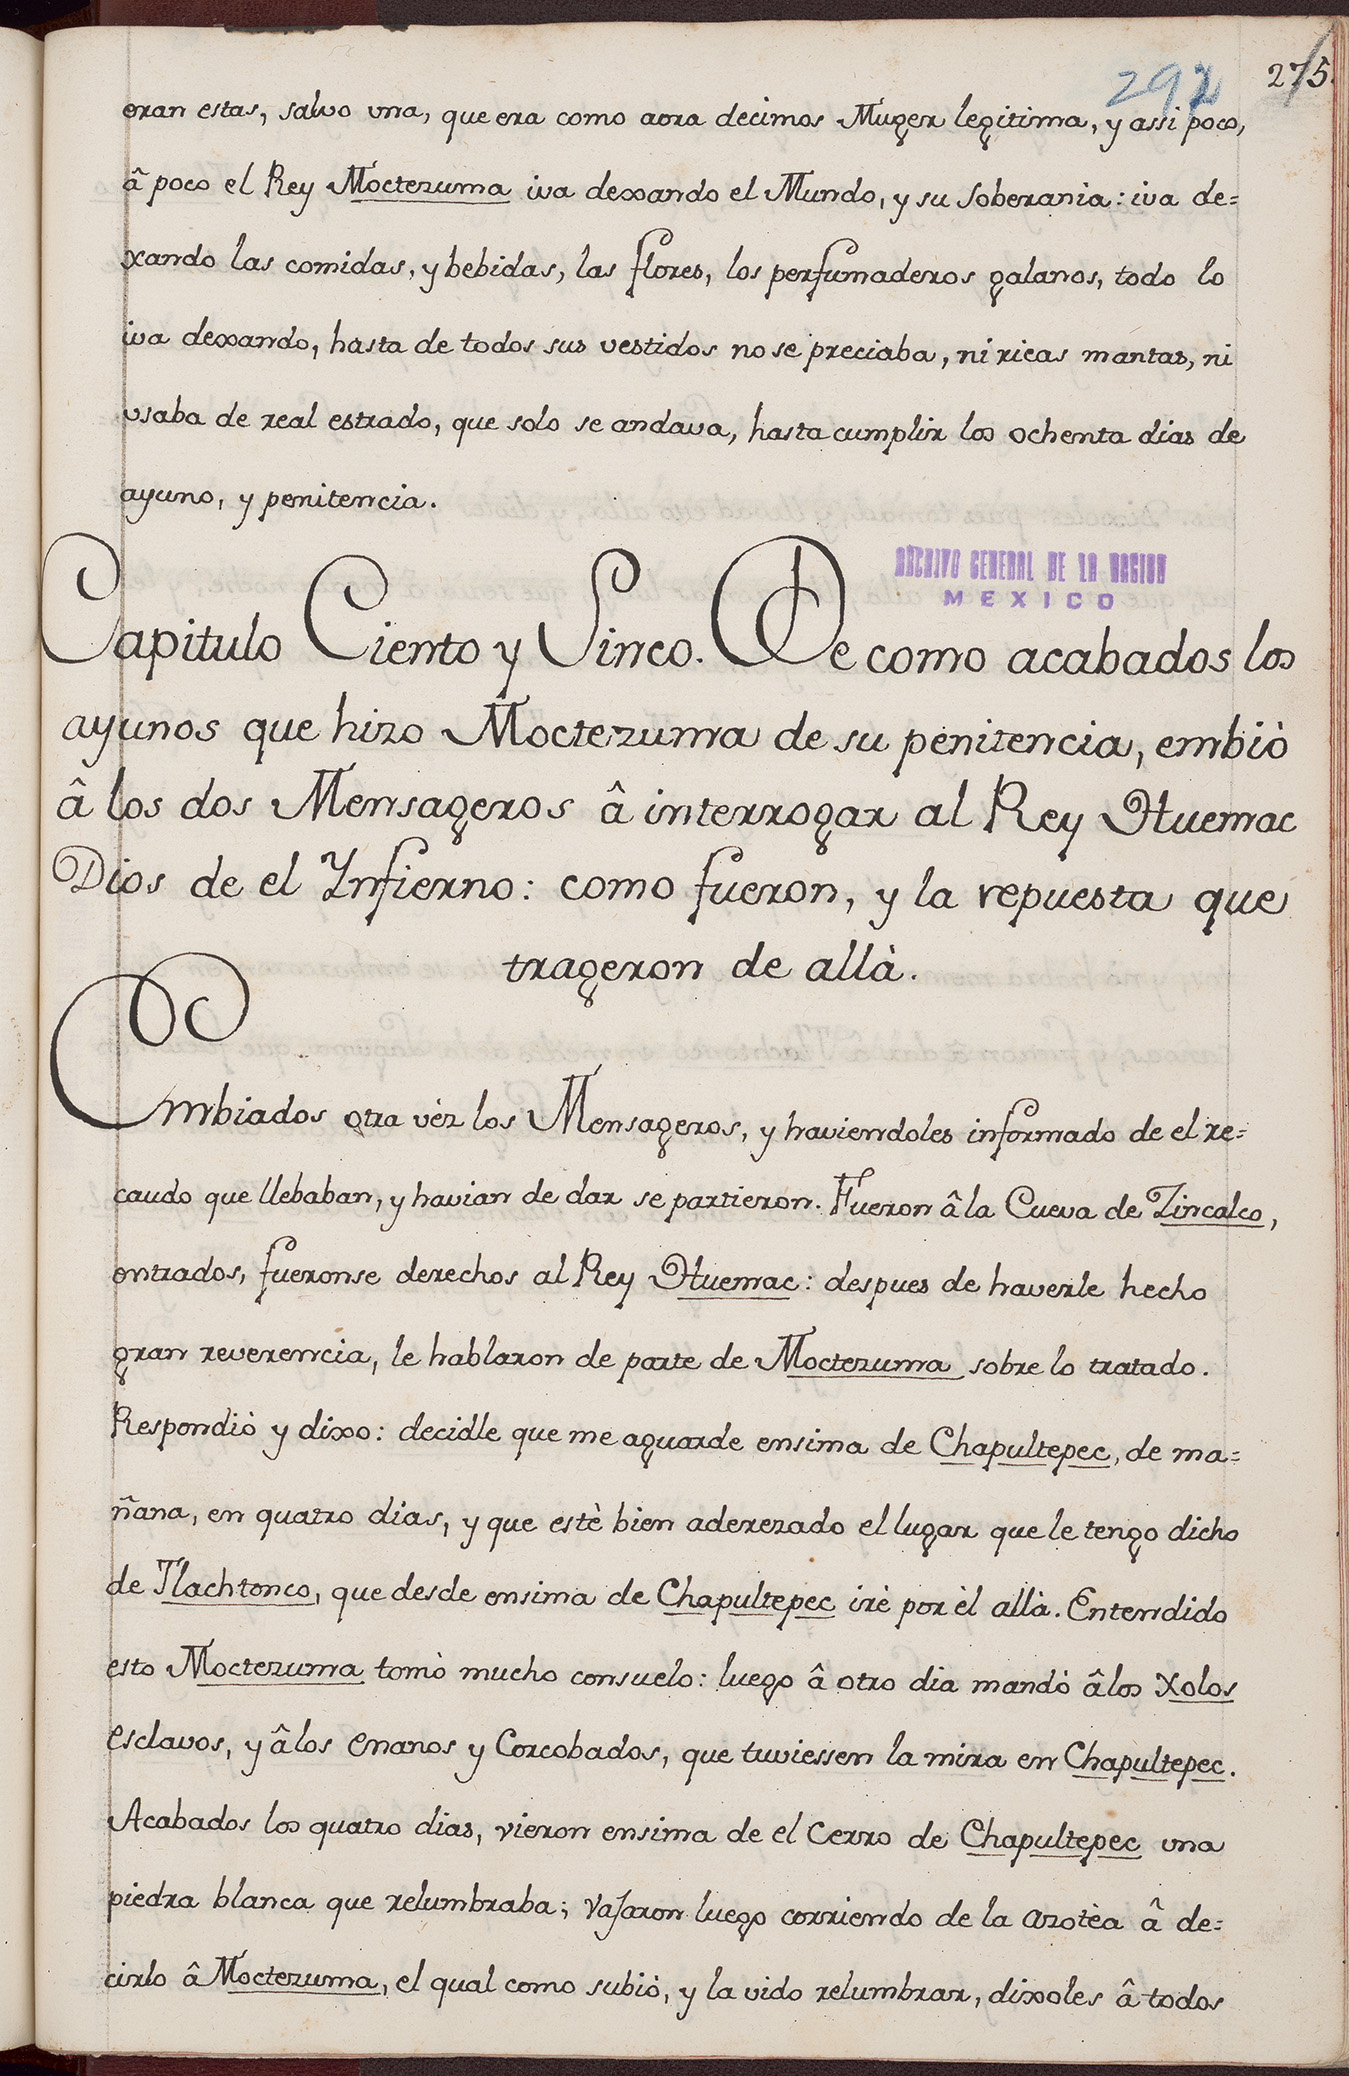 292 275.
eran estas, salvo vna, que era como aora decimos Muger legitima, y assi poco,
â poco el Rey Moctezuma iva dexando el Mundo, y su soberania: iva de=
xando las comidas, y bebidas, las flores, los perfumaderos galanos, todo lo
iva dexando, hasta de todos sus vestidos no se preciaba, ni ricas mantas, ni
vsaba de real estrado, que solo se andava, hasta cumplir los ochenta dias de
ayuno, y penitencia.
ARCHIVO GENERAL DE LA NACION
MEXICO
Capitulo Ciento y Sinco. De como acabados los
ayunos que hizo Moctezuma de su penitencia, embiò
â los dos Mensageros â interrogar al Rey Huemac
Dios de el Ynfierno: como fueron, y la repuesta que
trageron de allà.
Embiados otra vèz los Mensageros, y haviendoles informado de el re=
caudo que llebaban, y havian de dar se partieron. Fueron â la Cueva de Zincalco,
entrados, fueronse derechos al Rey Huemac: despues de haverle hecho
gran reverencia, le hablaron de parte de Moctezuma sobre lo tratado.
Respondiò y dixo: decidle que me aguarde ensima de Chapultepec, de ma=
ñana, en quatro dias, y que estè bien aderezado el lugar que le tengo dicho
de Tlachtonco, que desde ensima de Chapultepec irè por èl allà. Entendido
esto Moctezuma tomò mucho consuelo: luego â otro dia mandò â los Xolos
esclavos, y â los enanos y Corcobados, que tuviessen la mira en Chapultepec.
Acabados los quatro dias, vieron ensima de el Cerro de Chapultepec vna
piedra blanca que relumbraba; vajaron luego corriendo de la azotèa â de=
cirlo â Moctezuma, el qual como subiò, y la vido relumbrar, dixoles â todos